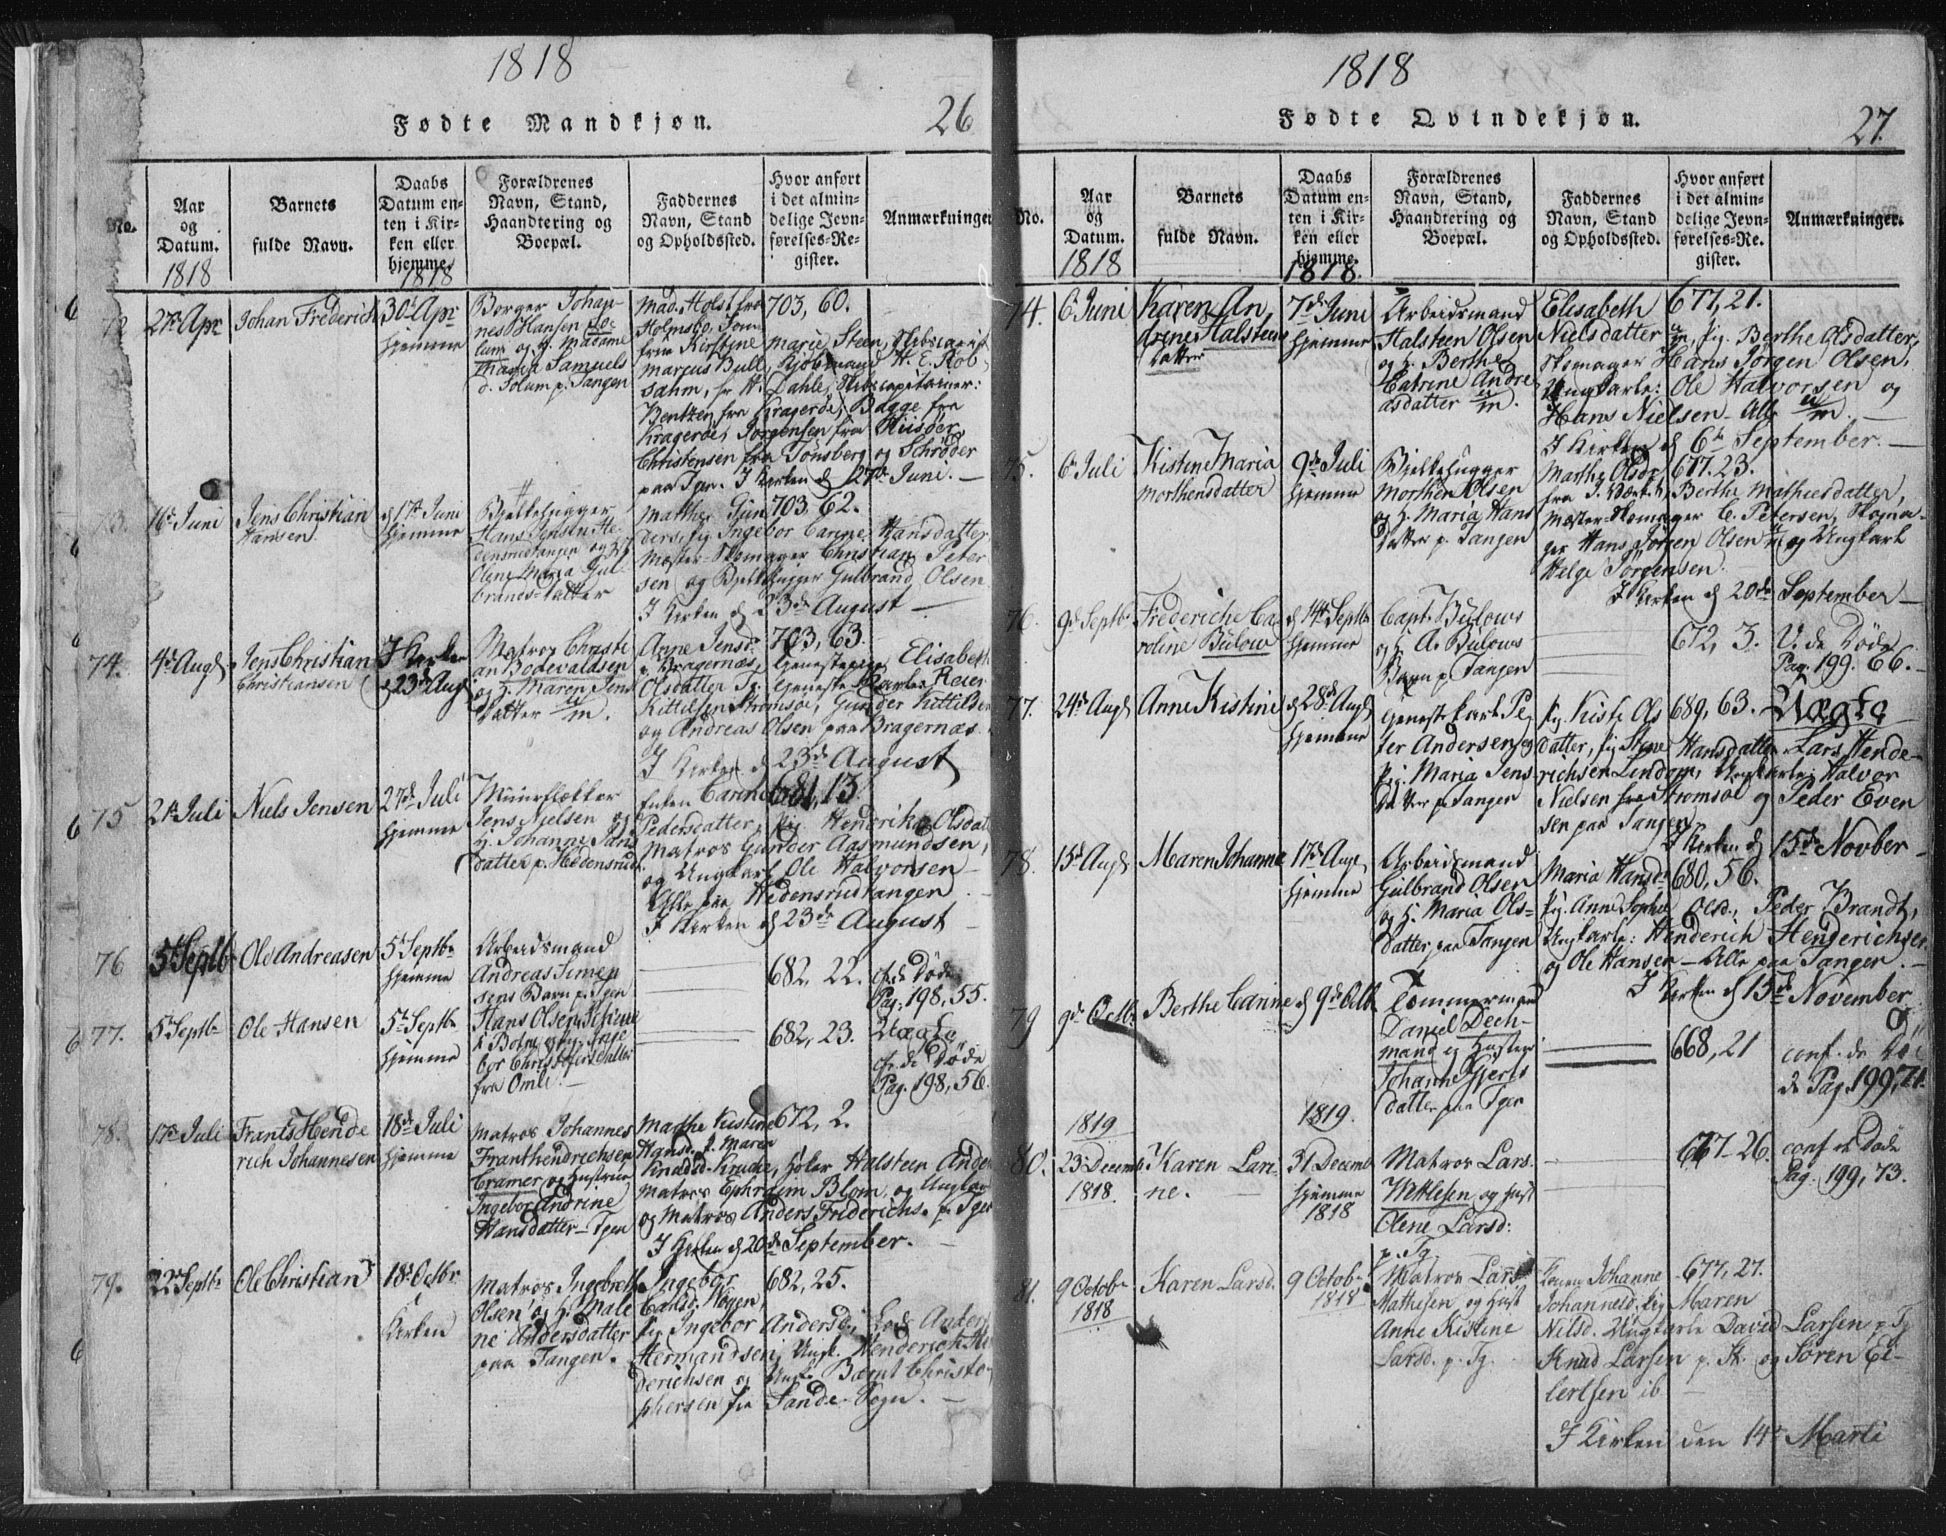 1818
Fødte Mandkjøn.
26
No.
Aar og Datum.
1818
Barnets fulde Navn.
Daabs Datum enten i Kirken eller hjemme.
1818
Forældrenes Navn, Stand, Haandtering og Boepæl.
Faddernes Navn, Stand og Opholdssted.
Hvor anført i det almindelige Jevnførelses-Register.
Anmærkninger
27 Apr
Johan Frederich
30 Apr
hjemme
Borger Johan-
nes Hansen So-
lum og H. Madame
Maria Samuels
d. Solum p. Tangen
Mad. Holst fra
Holmsbo, Jom
frue Kirstine Marie Steen, Skibscapit
Marcus Bull, Kjøbmand H. E. Rob-
sahm, Hr H. Dahle, Skibscapitainer:
Bentzen fra Kragerøe, Bagge fra
Kragerøe, Jørgensen fra Riisøer,
Christensen fra Tønsberg og Schrøder
paa Tgen. I Kirken d 27de Juni.
703, 60.
16 Juni
Jens Christian
Hansen
d 17de Juni
hjemme
Bjelkehugger
Hans Jensen He-
densrudtangen og H.
Olene Maria Gul-
brands-datter
Mathe Gun
ders, Pig Ingebor Carine Hansdatter
Mester-Skomager Christian Peter
sen og Bjelkehugger Gulbrand Olsen
I Kirken d 23de August
703, 62.
74.
4d Aug
Jens Christian
Christiansen
I Kirken
d 23d Aug
Matros Christi
an Bodevaldsen
og H. Maren Jens
datter
Anne Jensd.
p. Bragernæs, Elisabeth
Olsdatter Tg.
Kittilsen Strømsøe, Gunder Kittilsen
og Andreas Olsen paa Bragernæs
I Kirken d 23de August
703, 63.
75
21 Juli
Niels Jensen
27de Juli
hjemme
Jens Nielsen og
H. Johanne Jans
datter p. Hedensrud
Enken Carine
Pedersdatter, Pig Hendrika Olsdat
Matros Gunder Aasmundsen,
og Ungkarl Ole Halvorsen
Alle paa Hedensrudtangen
I Kirken d 23de August
681, 13
76
5t Septb
Ole Andreasen
5t Septb
hjemme
Arbeidsmand
Andreas Simen
sens Barn p. Tgen
682, 22.
cf. de Døde
Pag. 198, 55.
77.
5t Septb
Ole Hansen
5t Septb
hjemme
Hans Olsen
fra Omli
682, 23.
Uægte
cf. de Døde
Pag. 198, 56.
78.
17 Juli
Frants Hende
rich Johannesen
18de Juli
hjemme
Matros Johannes
Franthendrichsen
Cramer og Hustrue
Ingebor Andrine
Hansdatter Tgen
Marthe Kistine
Hansd. J. Maren
Halsteen Ander
Matros Ephraim Blom, og Ungkar
og Matros Anders Friderichs. p. Tgen
I Kirken d 20de September.
672, 2.
79.
22 Septb
Ole Christian
18 Octbr
i
Kirken
Matros Ingebreth
Olsen og H. Male
ne Andersdatter
paa Tangen.
Ingebor
Pig Ingebor Andersd.
Hermandsen, Ungk. Henderich He
derichsen og Ungk. Bernt Christo-
phersen fra Sande-Sogn.
682, 25.
1818
Fødte Qvindekjøn.
27.
No.
Aar og Datum.
1818
Barnets fulde Navn.
Daabs Datum enten i Kirken eller hjemme.
1818.
Forældrenes Navn, Stand, Haandtering og Boepæl.
Faddernes Navn, Stand og Opholdssted.
Hvor anført i det almindelige Jevnførelses-Re. gister.
Anmærkninger.
74.
6 Juni
Karen An
drine Halstens
datter
7de Juni
hjemme
Arbeidsmand
Halstein Olsen
og H. Berthe
Catrine Andre
asdatter
Elisabeth
Nielsdatter Pig. Berthe Olsdatter,
Skomager Hans Jørgen Olsen,
Ungkarle: Ole Halvorsen og
Hans Nielsen - Alle
I Kirken d 6te September.
677, 21.
75.
6 Juli
Kistine Maria
Morthensdatter
9de Juli
hjemme
Bjelkehugger
Morthen Olsen
og H. Maria Hans
datter p. Tangen
Marthe Olsdr
Berthe Mathiesdatter,
Mester-Skomager C. Petersen, Skoma-
ger Hans Jørgen Olsen og Ungkarl
Helge Jørgensen.
I Kirken d 20de September
677. 23.
76.
9d Septb
Frederiche Ca
roline Bülow
d 14t Septb
hjemme
Capt. Bülows
og H. A. Bülows
Barn p. Tangen
672, 3.
V. de Døde
Pag. 199. 66.
77.
24d Aug
Anne Kistine
d 28d Aug
hjemme
Tjenestekarl Pe
ter Andersen og
Pig. Maria Jens
datter p. Tangen
Pig. Kisti Ols
datter, Pig Stine Hansdatter Lars Hende-
richsen Lindom, Ungkarle: Halvor
Nielsen fra Strømsøe og Peder Even
sen paa Tangen
I Kirken d 15de Novber
689, 63.
Uægte
78.
15d Aug
Maren Johanne
17d Aug
hjemme
Arbeidsmand
Gulbrand Olsen
og H. Maria Ols-
datter, paa Tangen
Maria Hansd.
Pig. Anne Sophie Olsd., Peder Brandt,
Ungkarle: Henderich Henderichsen
og Ole Hansen - Alle paa Tangen.
I Kirken d 15de November
680, 56.
79
9d Octb
Berthe Carine
d 9d Octb
Tømmermand
Daniel Dech-
mand og Hustrue
Johanne Gjerts
datter paa Tgen
668, 21
conf. de Dø
de Pag 199, 71.
1819
1819.
80.
23 Decemb
1818.
Karen Lari-
ne.
31 Decemb
hjemme
1818
Matros Lars
Wetlesen og Hust
Olene Larsd:
p. Tg.
667-26.
conf. de Døde
Pag. 199, 73.
81.
9 Octobr
1818
Karen Larsd.
9 Octobr
1818
Matros Lars
Mathesen og Hust
Anne Kistine
Larsd. p. Tg.
Karen Johanne
Johannesd. Pig Maren
Nilsd. Ungkarle David Larsen p. Tg
Knud Larsen p. St. og Søren Ei-
lertsen ib.
I Kirken den 14d Marti
677, 27.